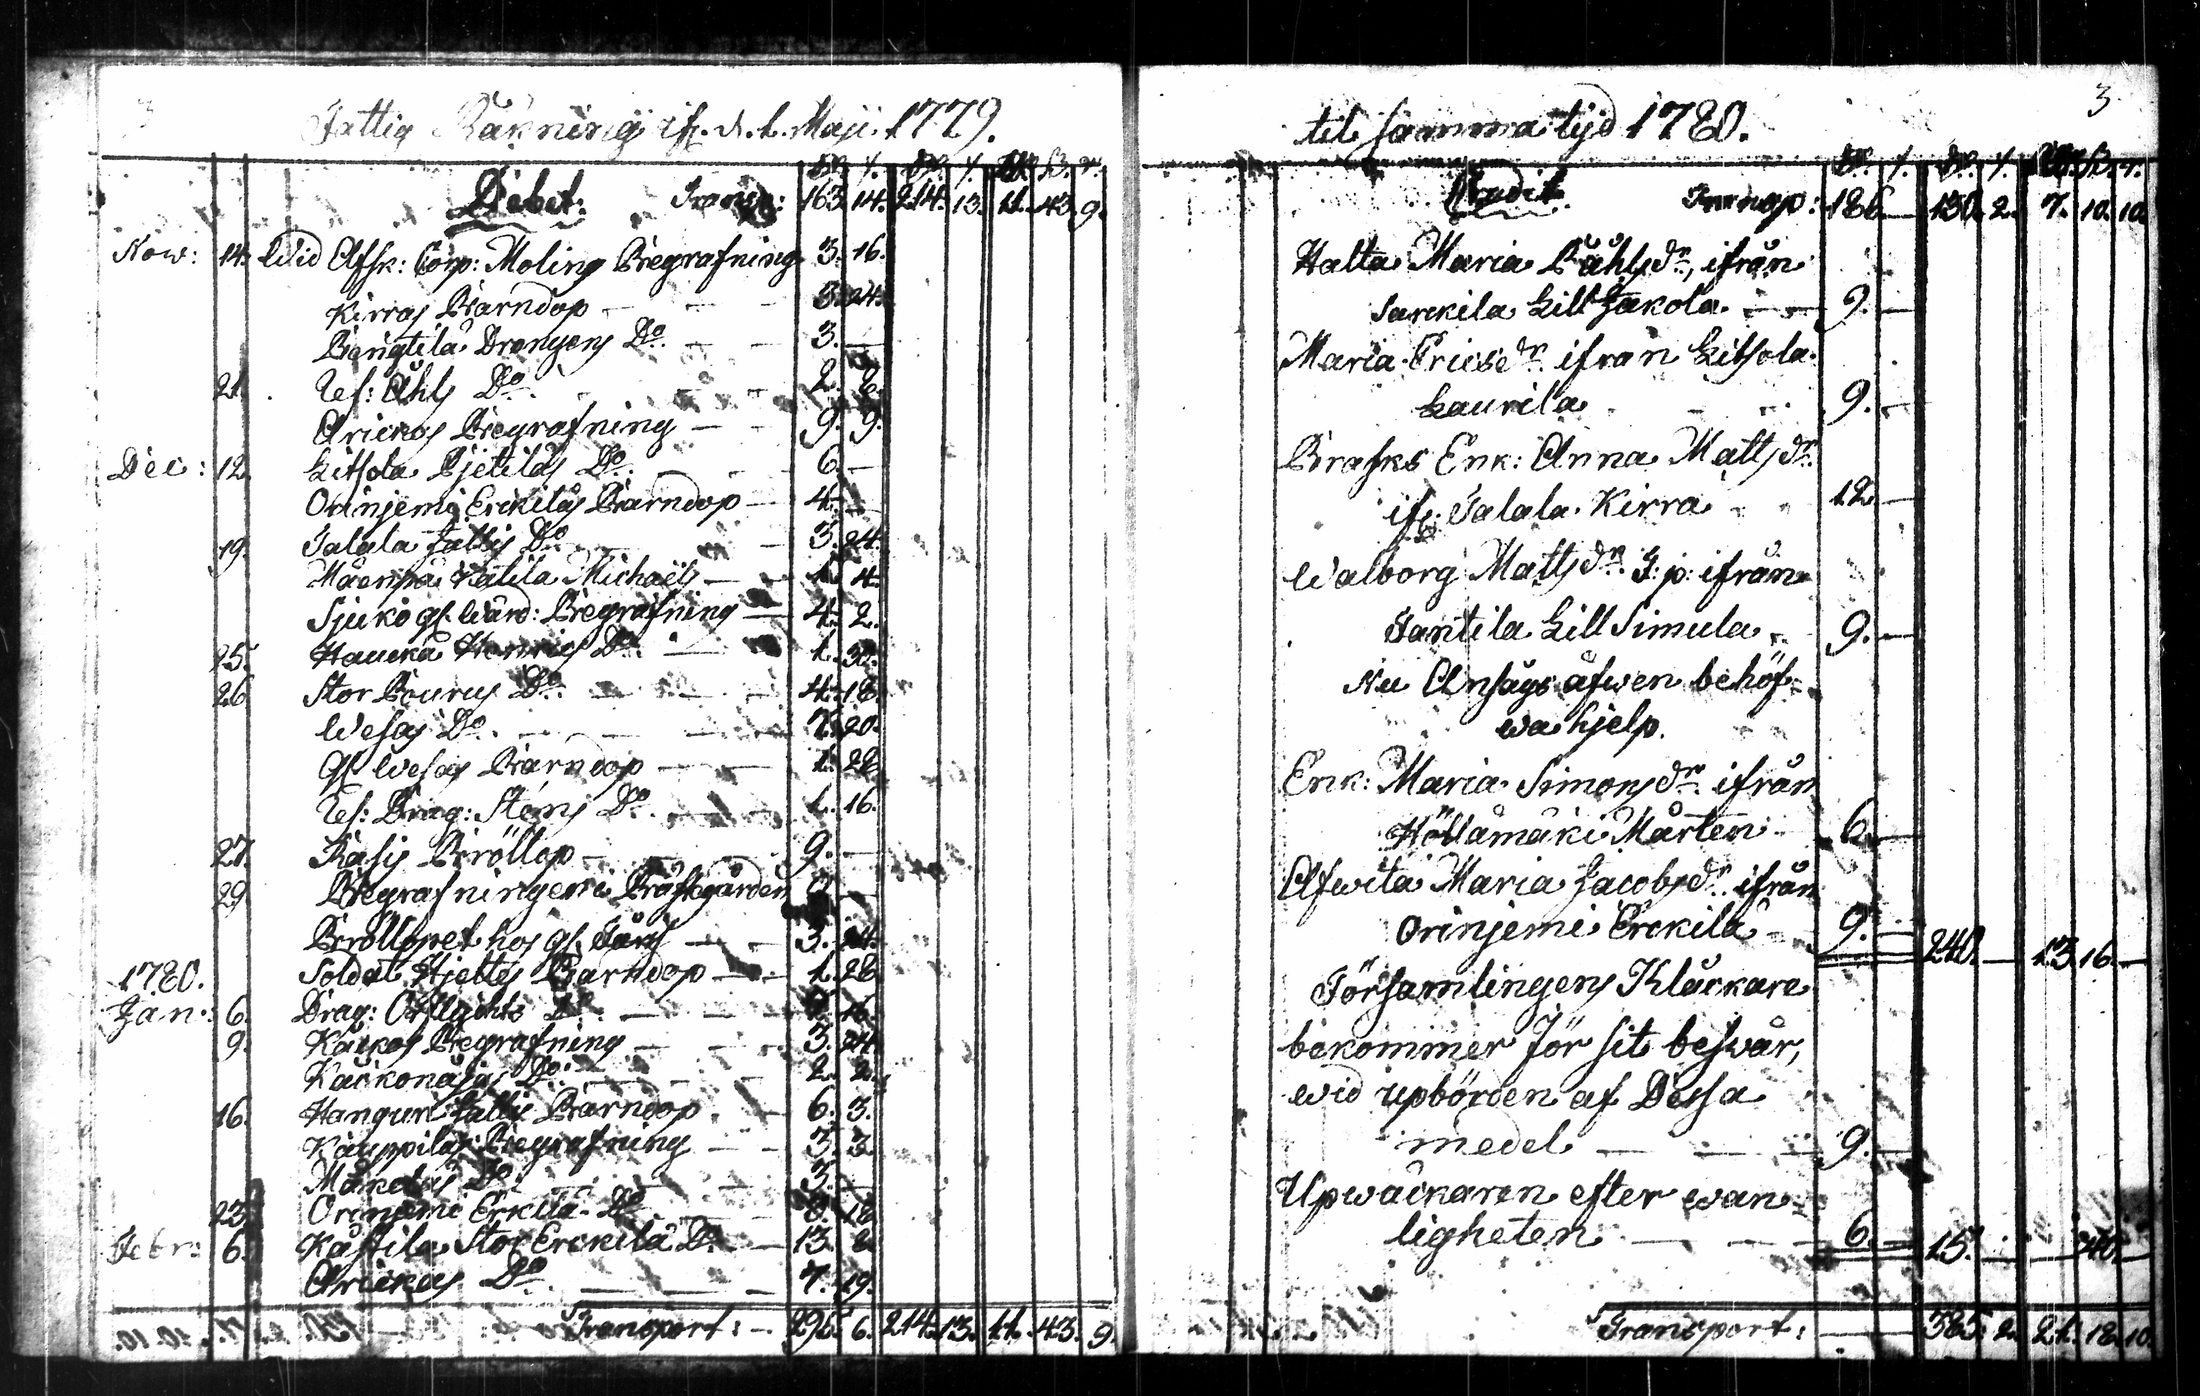 Fattig Räkning ifr. d. 1. Maji 1779.
Debet: Transp: 163. 14. 214. 13. 11. 43. 9.
Now: 14. Wid Afsk: Corp: Moling Begrafning 3. 16.
Kirras Barndop 3. 24.
Bengtilä Drengens Do. 3. —
21. Ref: Ahls Do. 2. 8.
Arickas Begrafning 9. 9.
Dec: 12. Litsola Pjetiläs Do. 6. —
Orinjemi Erckiläs Barndop 4. —
19. Talala Jallis Do. 3. 24.
Mäenpä Katila Michaels 1. 4.
Sjuko gl. Wärd: Begrafning 4. 2.
25. Haucka Henrics Do. 1.
26. Stor Bourus Do. 4. 18.
Wesas Do. 7. 20.
Gl. Wesas Barndop 1. 28.
Ref: Drag: Stens Do. 1. 16.
27. Räsis Bröllop 9. —
29. Begrafningen i Prästgården
Bröllopet hos gl. 3. 24.
1780.
Soldat Hjeltes Barndop 1. 28
Jan: 6. Drag: Do. 16.
9. Käckos Begrafning 3. 24.
Käckonäjas Do. 2. 2.
16. Hanguri Jallis Barndop 6. 3.
Kauppilas Begrafning 3. 3.
Mäkelas Do. 3. —
23. Orinjemi Erckilä Do. 18.
Febr: 6. Kästila Stor Erckilä Do. 13. 8.
Arickas Do. 7. 19.
Transport: 296. 6. 214. 13. 11. 43. 9.
til samma tijd 1780. 3
Credit. Transp: 186. — 130. 2. 7. 10. 10.
Halta Maria Påhlsdr. ifrån
Sarckila Lill Jakola. 9. —
Maria Ericsdr. ifrån Litsola
Laurila 9. —
Brasks Enk: Anna Mattsdr.
ifr. Talala Kirra 12. —
Walborg Mattsdr. I: p: ifrån
Jantila Lill Simula 9. —
Nu Ansågs äfwen behöf-
wa hjelp.
Enk: Maria Simonsdr. ifrån
Höllämäki Mårten 6. —
Afwita Maria Jacobsdr. ifrån
Orinjemi Erckilä 9. — 240. — 13. 16. —
Församlingens Klåckare
bekommer för sit beswär,
wid upbörden af Dessa
medel — 9. —
Upwäckaren efter wan-
ligheten 6. — 15. — 40. —
Transport: — 385. 2. 21. 18. 10.